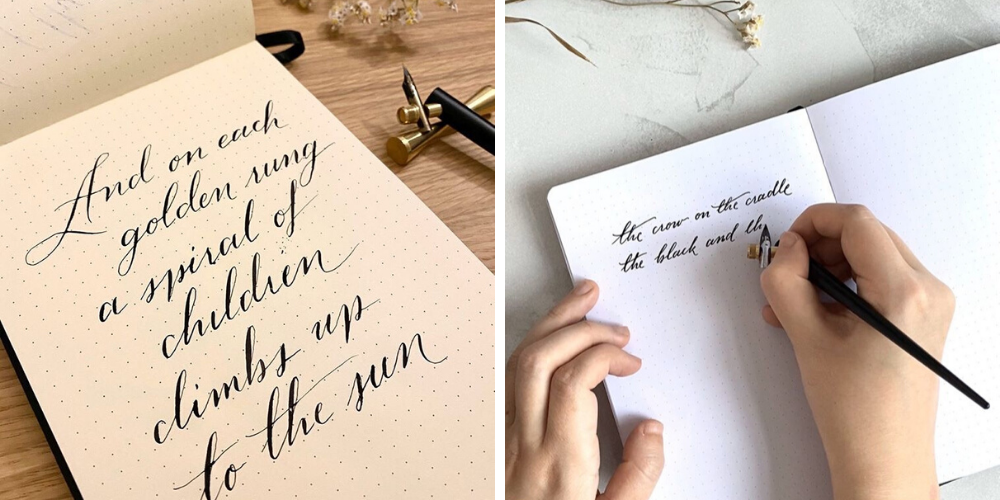 And on each
golden rung
a spiral of
children
climbs up
to the sun
the crow on the cradle
the black and th